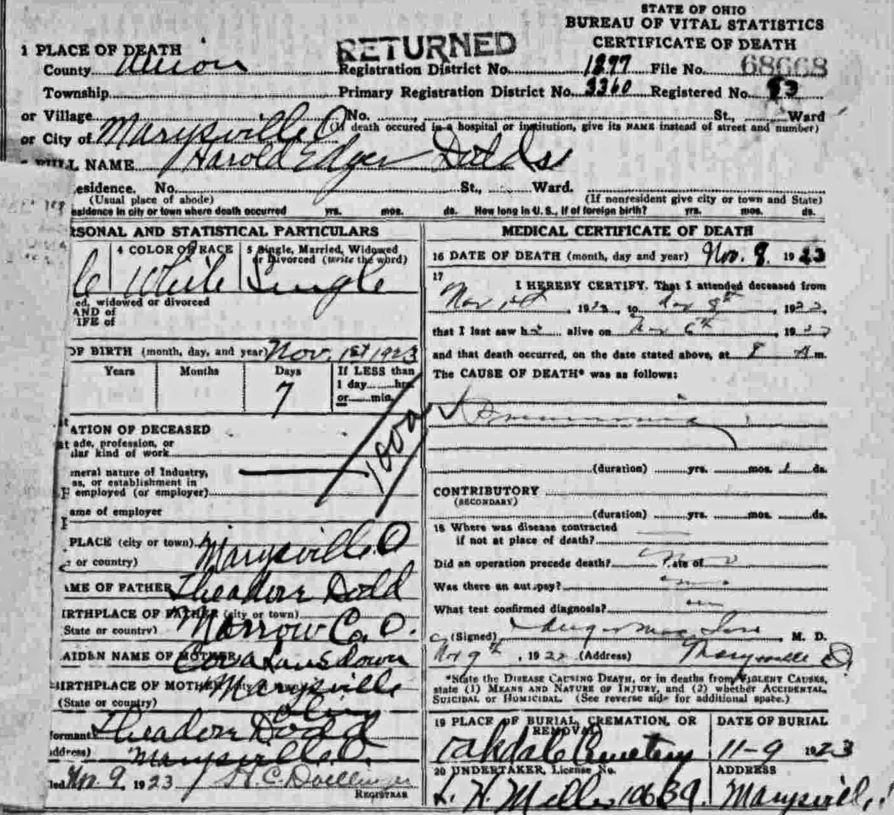 STATE OF OHIO
BUREAU OF VITAL STATISTICS
CERTIFICATE OF DEATH
RETURNED
1 PLACE OF DEATH
County Union Registration District No. 1297 File No. 68668
Township Primary Registration District No. 3360 Registered No. 83
or Village No. St., Ward
or City of Marysville O. (If death occured in a hospital or institution, give its NAME instead of street and number)
FULL NAME Harold Edgar Dodds
esidence. No. St., Ward.
(Usual place of abode) (If nonresident give city or town and State)
esidence in city or town where death occurred yrs. mos. ds. How long in U. S., if of foreign birth? yrs. mos. ds.
RSONAL AND STATISTICAL PARTICULARS
4 COLOR OF RACE 5 Single, Married, Widowed
or Divorced (write the word)
White Single
ed, widowed or divorced
AND of
IFE of
OF BIRTH (month, day, and year) Nov. 1st 1923
Years Months Days If LESS than
1 day hrs.
7 or min.
1000
ATION OF DECEASED
ade, profession, or
ular kind of work
neral nature of Industry,
ss, or establishment in
employed (or employer)
ame of employer
PLACE (city or town) Marysville O
or country)
AME OF FATHER Theadore Dodd
IRTHPLACE OF FATHER (city or town)
State or country) Morrow Co. O.
AIDEN NAME OF MOTHER Lansdown
BIRTHPLACE OF MOTHER Marysville
(State or country) Ohio
formant Theadore Dodd
address) Marysville O.
Nov 9, 1923 H. C. Doellinger
REGISTRAR
MEDICAL CERTIFICATE OF DEATH
16 DATE OF DEATH (month, day and year) Nov. 8, 1923
17
I HEREBY CERTIFY, That I attended deceased from
Nov 1st, 1923, to Nov 8th, 1923
that I last saw h alive on Nov 6th, 19
and that death occurred, on the date stated above, at 8 A m.
The CAUSE OF DEATH* was as follows:
(duration) yrs. mos. 1 ds.
CONTRIBUTORY
(SECONDARY)
(duration) yrs. mos. ds.
18 Where was disease contracted
if not at place of death?
Did an operation precede death? No Date of
Was there an autopsy?
What test confirmed diagnosis?
(Signed) M. D.
Nov 9th, 192 (Address) Marysville O.
*State the DISEASE CAUSING DEATH, or in deaths from VIOLENT CAUSES,
state (1) MEANS AND NATURE OF INJURY, and (2) whether ACCIDENTAL,
SUICIDAL or HOMICIDAL. (See reverse side for additional space.)
19 PLACE OF BURIAL, CREMATION, OR REMOVAL DATE OF BURIAL
Oakdale Cemetery 11-9 1923
20 UNDERTAKER, License No. ADDRESS
L. H. Miller 1063A. Marysville,